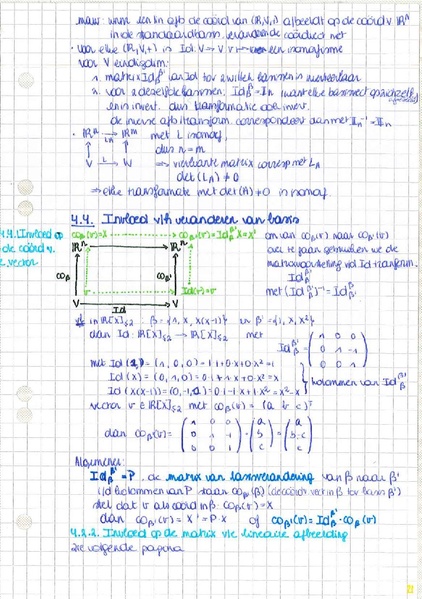 maar: want een lin afb de coörd van (ℝ,V,+) afbeeldt op de coörd v ℝⁿ
in de standaardbasis, veranderen de coördinaten niet
· voor elke (ℝ,V,+) is Id: V → V v ↦ v een isomorfisme
voor V eindigdim:
1. matrix Id van Id tov 2 willek basissen is inverteerbaar
2. voor 2 dezelfde basissen: Id = 𝕀n want elke basisvect op zichzelf
en is invert. dus transformatie ook invert.
de inverse afb/transform. correspondeert dan met 𝕀n⁻¹ = 𝕀n
· ℝⁿ → ℝᵐ met L isomorf,
LA
dus n = m
V → W L
⇒ vierkante matrix corresp met LA
det(LA) ≠ 0
⇒ elke transformatie met det(A) ≠ 0 is isomorf
4.4. Invloed v/h veranderen van basis
4.4.1. Invloed op
de coörd v.
e. vector
coβ(v) = X coβ'(v) = Idβ^β' X = X'
ℝⁿ → ℝⁿ
coβ coβ'
v Id(v) = v
V → V
Id
om van coβ(v) naar coβ'(v)
over te gaan gebruiken we de
matrixvoorstelling vd Id-transform.
Idβ^β'
met (Idβ^β')⁻¹ = Idβ'^β
vb in ℝ[X]≤2 β = {1, X, X(X-1)} en β' = {1, X, X²}
dan Id: ℝ[X]≤2 → ℝ[X]≤2 met
Idβ^β' = (1 0 0
0 1 -1
0 0 1)
met Id(1) = (1, 0, 0) = 1·1 + 0·X + 0·X² = 1
Id(X) = (0, 1, 0) = 0·1 + 1·X + 0·X² = X
Id(X(X-1)) = (0, -1, 1) = 0·1 - 1·X + 1·X² = X² - X
kolommen van Idβ^β'
vector v ∈ ℝ[X]≤2 met coβ(v) = (a b c)ᵀ
dan coβ'(v) = (1 0 0
0 1 -1
0 0 1) · (a
b
c) = (a
b-c
c)
Algemener:
Idβ^β' = P, de matrix van basisverandering van β naar β'
(id kolommen van P staan coβ'(β) (de coörd v vect in β tov basis β')
stel dat v als coörd in β: coβ(v) = X
dan coβ'(v) = X' = P·X of coβ'(v) = Idβ^β' · coβ(v)
4.2.2. Invloed op de matrix v/e lineaire afbeelding
zie volgende pagina